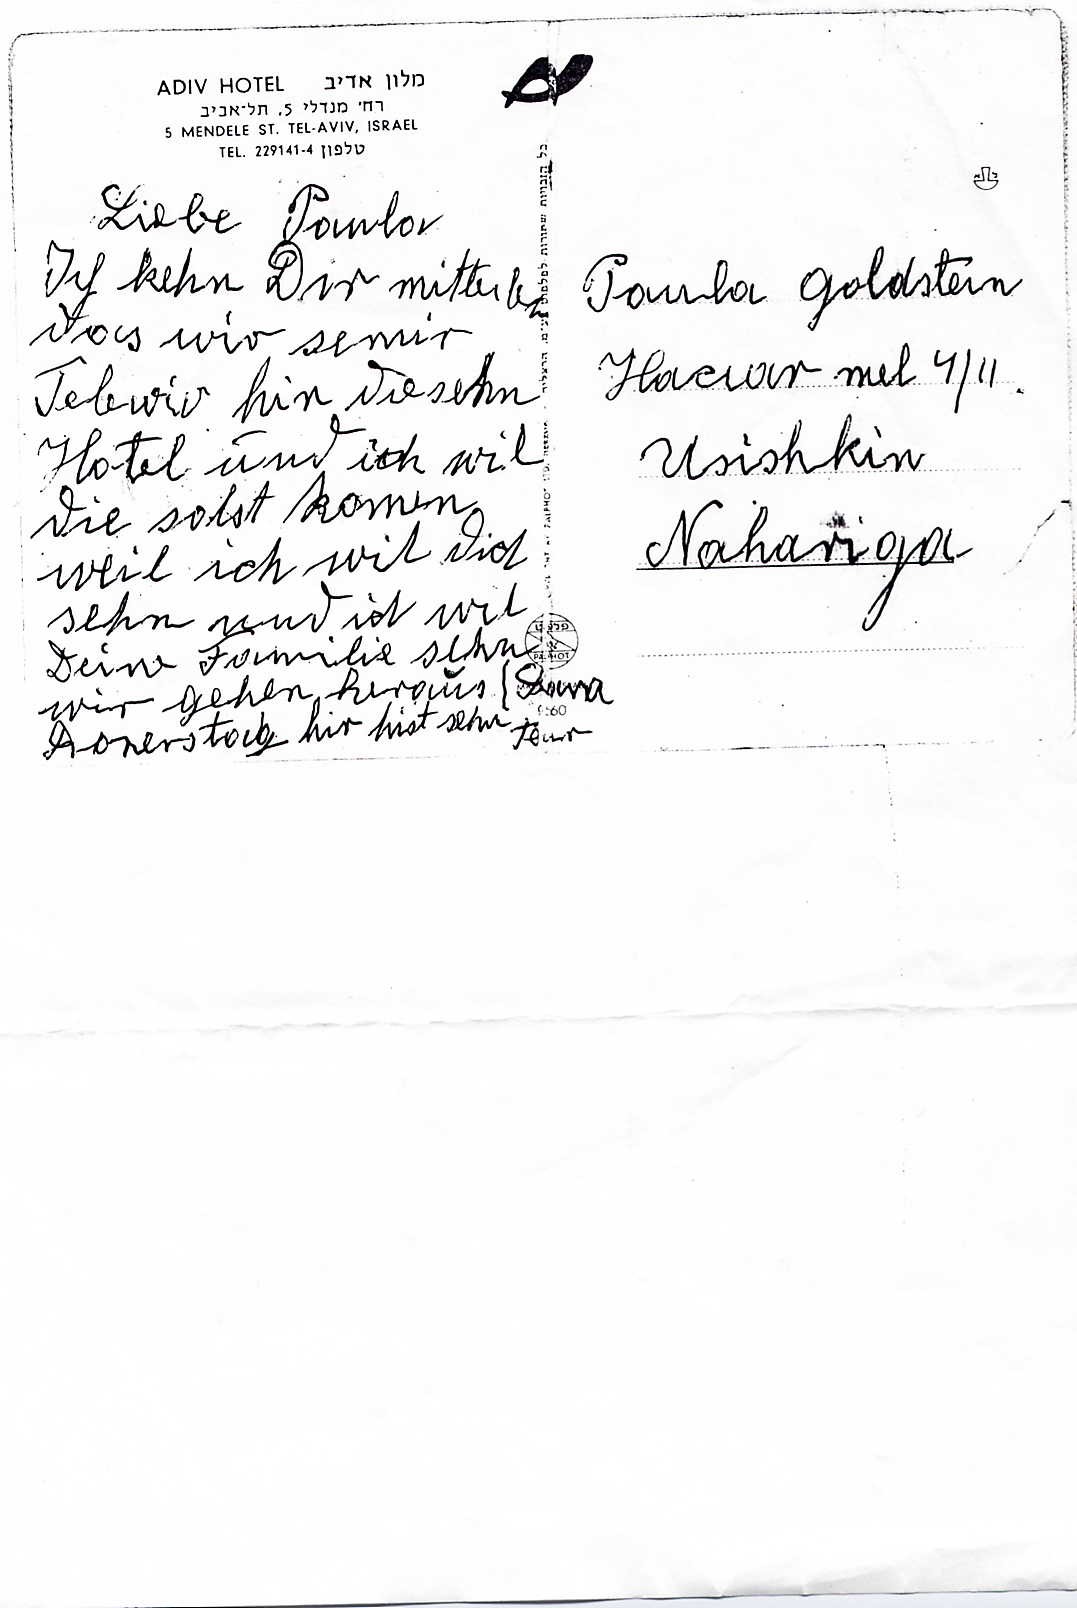 ADIV HOTEL מלון אדיב
רח' מנדלי 5, תל-אביב
5 MENDELE ST. TEL-AVIV, ISRAEL
TEL. 229141-4 טלפון
Liebe Paula
Ich kehn Dir mitteilen
das wir semir
Telewiv hir diesehn
Hotel und ich wil
die solst komen
weil ich wil dich
sehn und ich wil
Deine Familie sehn
wir gehen heraus
Donerstag hir hist sehr
teur
כל הזכויות שמורות לפלפוט
פלפוט
PALPHOT
Paula Goldstein
Hacwar mel 4/11
Usishkin
Nahariga